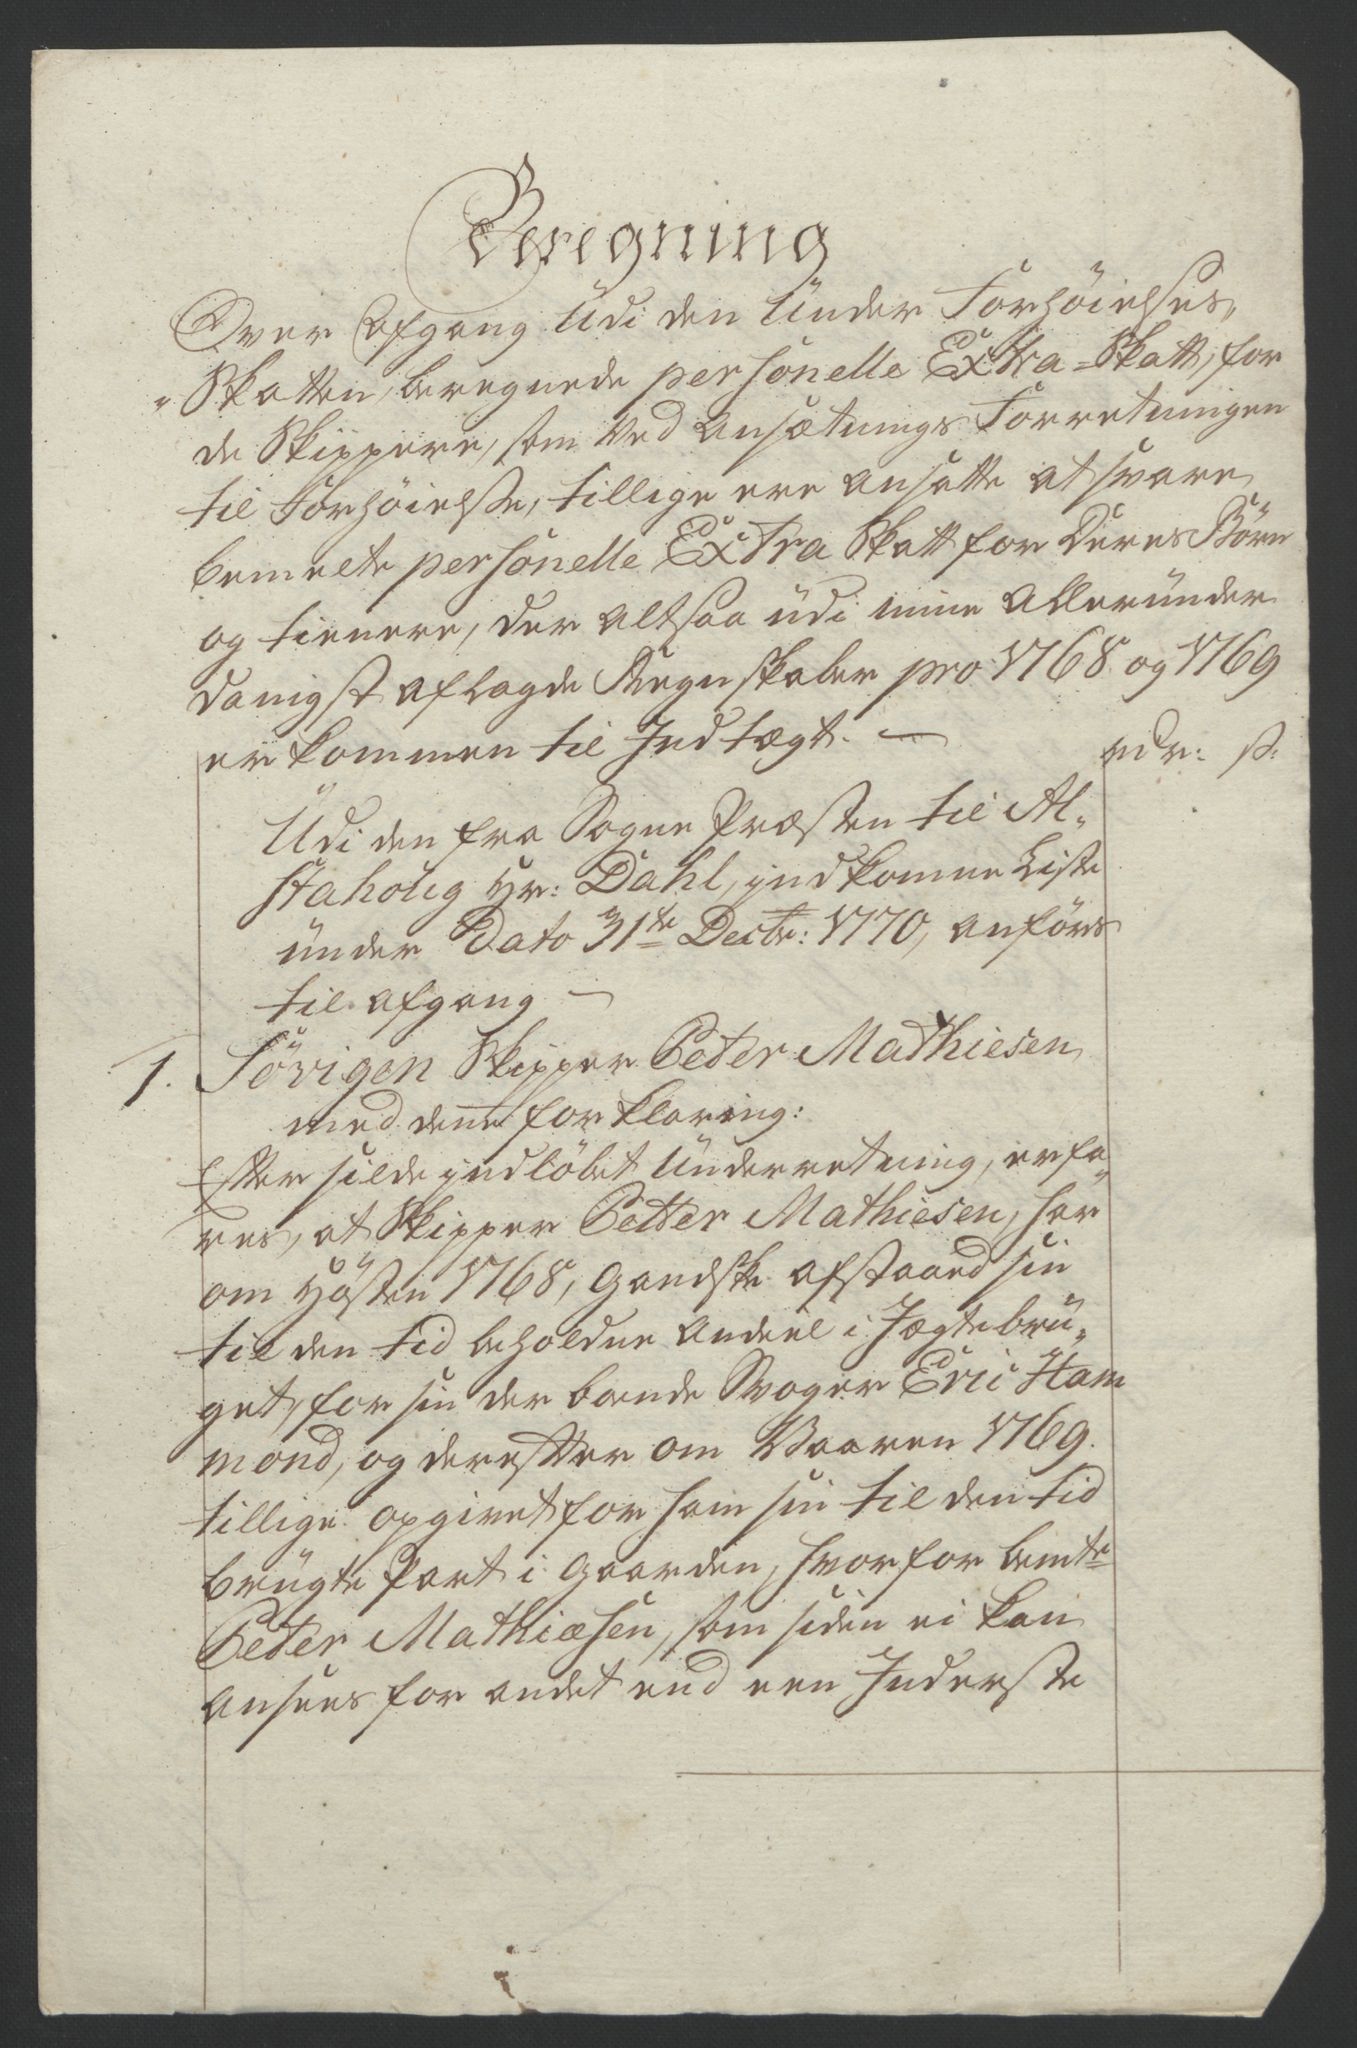 Beregning
Over Afgang Udi den Under Forhöielses„
„Skatten, beregnede personelle Extra-Skatt, for
de Skippere, som ved Ansætnings Forretningen
til Forhöielse, tillige ere ansatte at svare
bemelte personelle Extra Skatt for Deres Börn
og tienere, der altsaa üdi mine Alleründer
danigst aflagde Regnskaber pro 1768 og 1769
er kommen til Indtægt. —
rdr: s:
Udi den fra Sogne Præsten til Al„
stahoug Hr: Dahl, indkomne Liste
ünder Dato 31te Decbr: 1770, anförs
til afgang —
1. Sövigen Skipper Peter Mathiesen
med denne forklaring:
Efter silde indlöbet Ünderretning, erfa„
res, at Skipper Petter Mathiesen, har
om Hösten 1768, Gandske afstaaed sin
til den tid beholdne Andeel i Jægtebrü„
get, for sin der boende Svoger Eric Ham
mond, og derefter om Vaaren 1769.
tillige opgivet for ham sin til den tid
brügte Part i Gaarden, hvorfor bemte
Peter Mathiæsen, som siden ei kan
ansees for andet end een Inderste